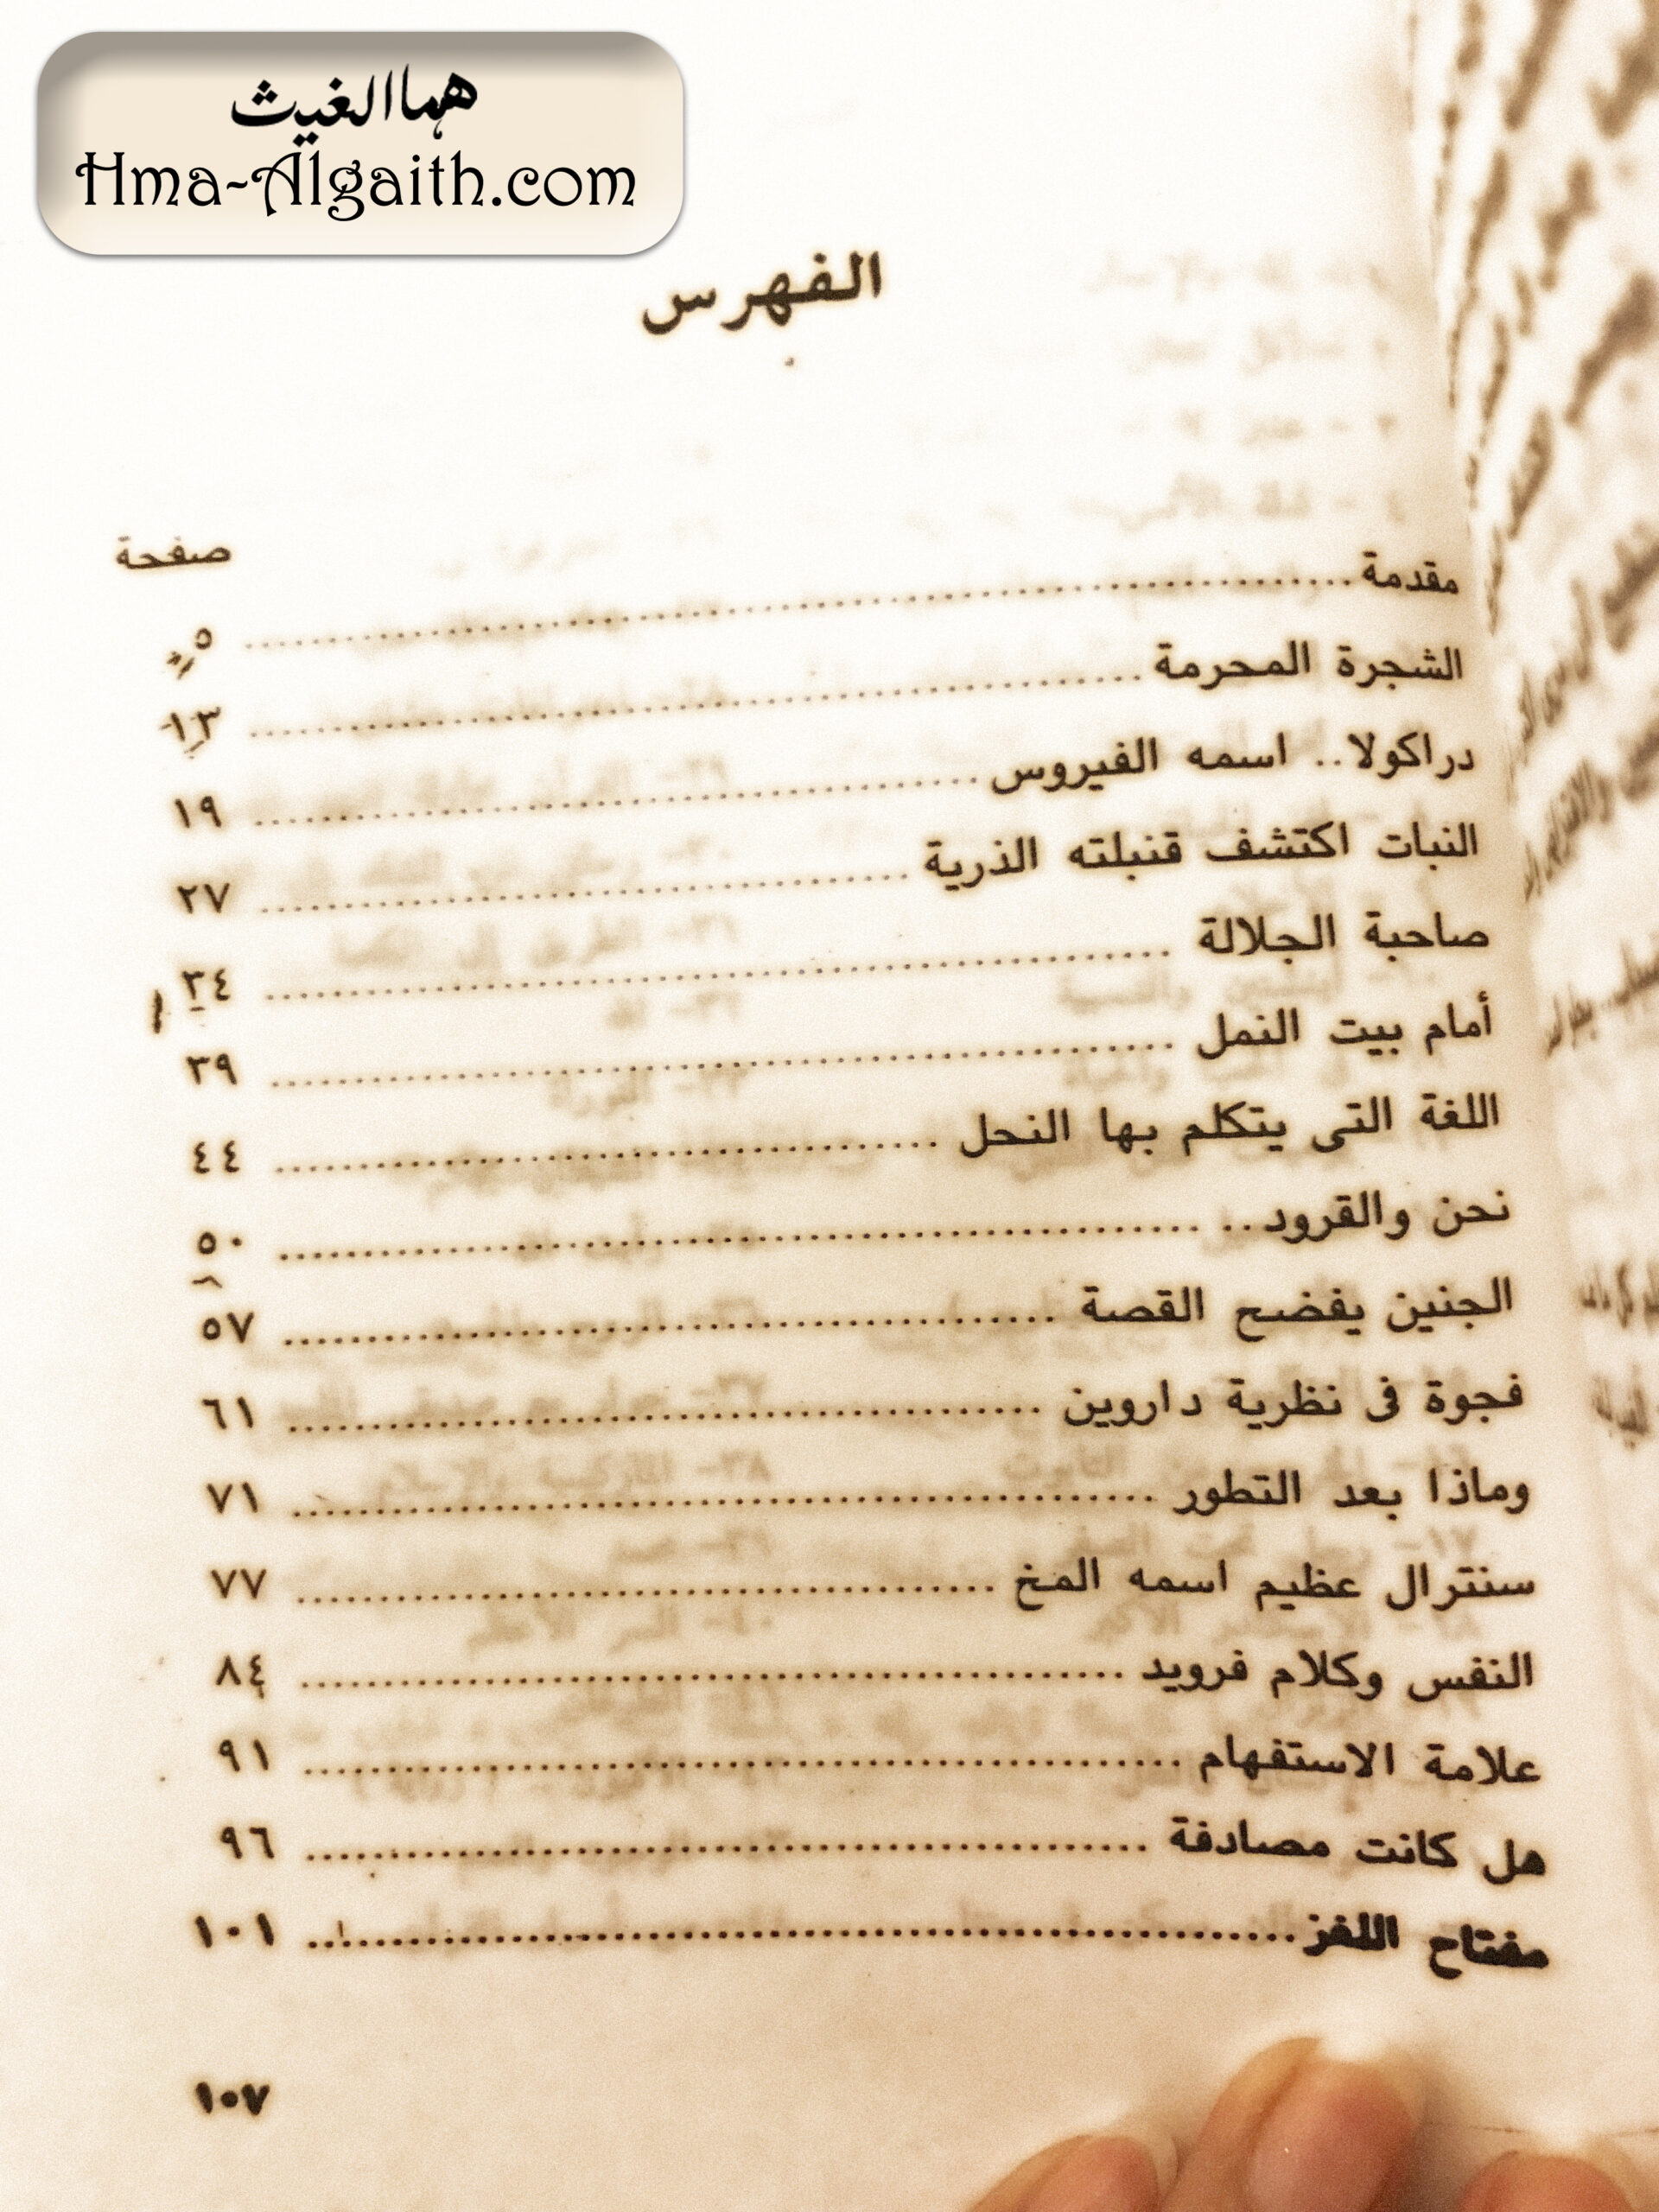 هما الغيث
Hma-Algaith.com
الفهرس
صفحة
مقدمة ........ ٥
الشجرة المحرمة ........ ١٣
دراكولا.. اسمه الفيروس ........ ١٩
النبات اكتشف قنبلته الذرية ........ ٢٧
صاحبة الجلالة ........ ٣٤
أمام بيت النمل ........ ٣٩
اللغة التى يتكلم بها النحل ........ ٤٤
نحن والقرود.. ........ ٥٠
الجنين يفضح القصة ........ ٥٧
فجوة فى نظرية داروين ........ ٦١
وماذا بعد التطور ........ ٧١
سنترال عظيم اسمه المخ ........ ٧٧
النفس وكلام فرويد ........ ٨٤
علامة الاستفهام ........ ٩١
هل كانت مصادفة ........ ٩٦
مفتاح اللغز ........ ١٠١
١٠٧